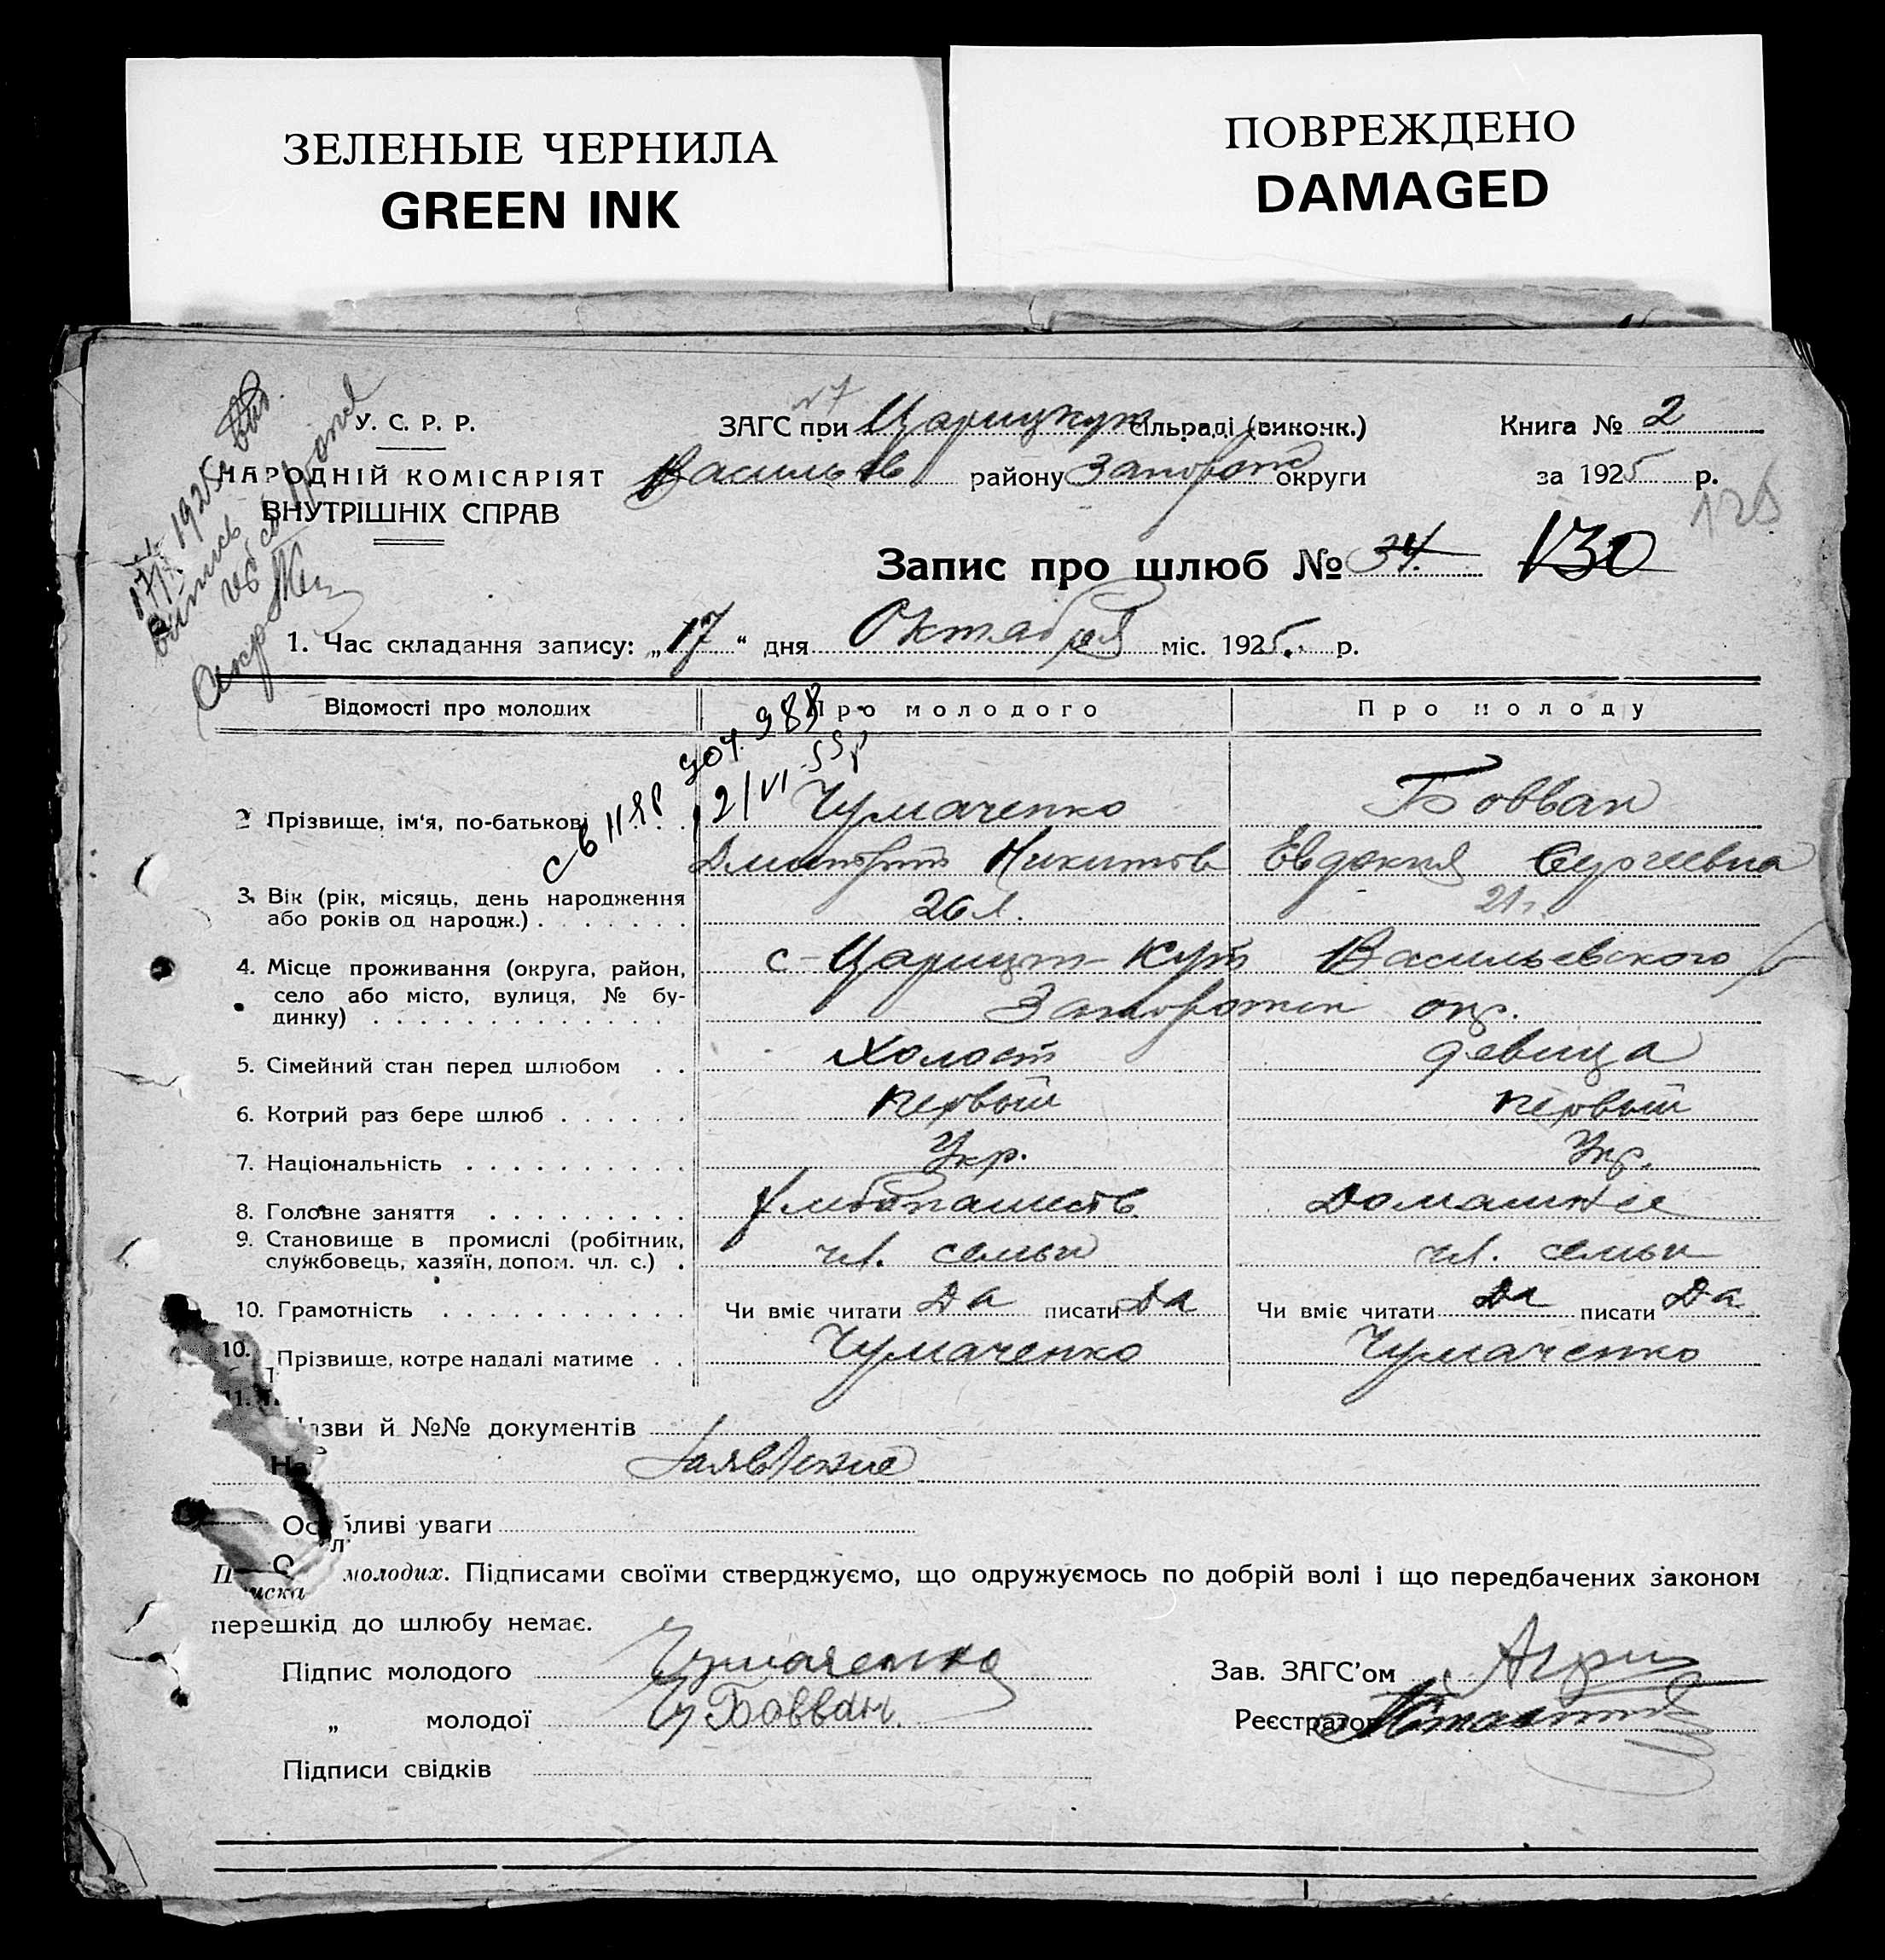 ЗЕЛЕНЫЕ ЧЕРНИЛА
GREEN INK
ПОВРЕЖДЕНО
DAMAGED
У. С. Р. Р.
НАРОДНІЙ КОМІСАРІЯТ
ВНУТРІШНІХ СПРАВ
ЗАГС при Царицкут сільраді (виконк.)
Васильев району Запорож округи
Книга № 2
за 1925 р.
Запис про шлюб № 34. 130
1. Час складання запису: „17“ дня Октября міс. 1925. р.
Відомості про молодих
Про молодого
Про молоду
2. Прізвище, ім'я, по-батькові
Чумаченко
Бовван
Дмитрий Никитов
Евдокия Сергеевна
3. Вік (рік, місяць, день народження
або років од народж.)
26 л.
21 г.
4. Місце проживання (округа, район,
село або місто, вулиця, № бу-
динку)
с-Царицын-Кут Васильевского р
Запорожск окр.
5. Сімейний стан перед шлюбом
Холост
девица
6. Котрий раз бере шлюб
первый
первый
7. Національність
Укр.
Укр.
8. Головне заняття
Хлебопашеств
Домашнее
9. Становище в промислі (робітник,
службовець, хазяїн, допом. чл. с.)
чл. семьи
чл. семьи
10. Грамотність
Чи вміє читати Да писати Да
Чи вміє читати Да писати Да
10. Прізвище, котре надалі матиме
Чумаченко
Чумаченко
11.
Назви й №№ документів
Заявление
Особливі уваги
молодих. Підписами своїми стверджуємо, що одружуємось по добрій волі і що передбачених законом
перешкід до шлюбу немає.
Підпис молодого Чумаченко
Зав. ЗАГС'ом
„ молодої Бовван.
Реєстратор
Підписи свідків